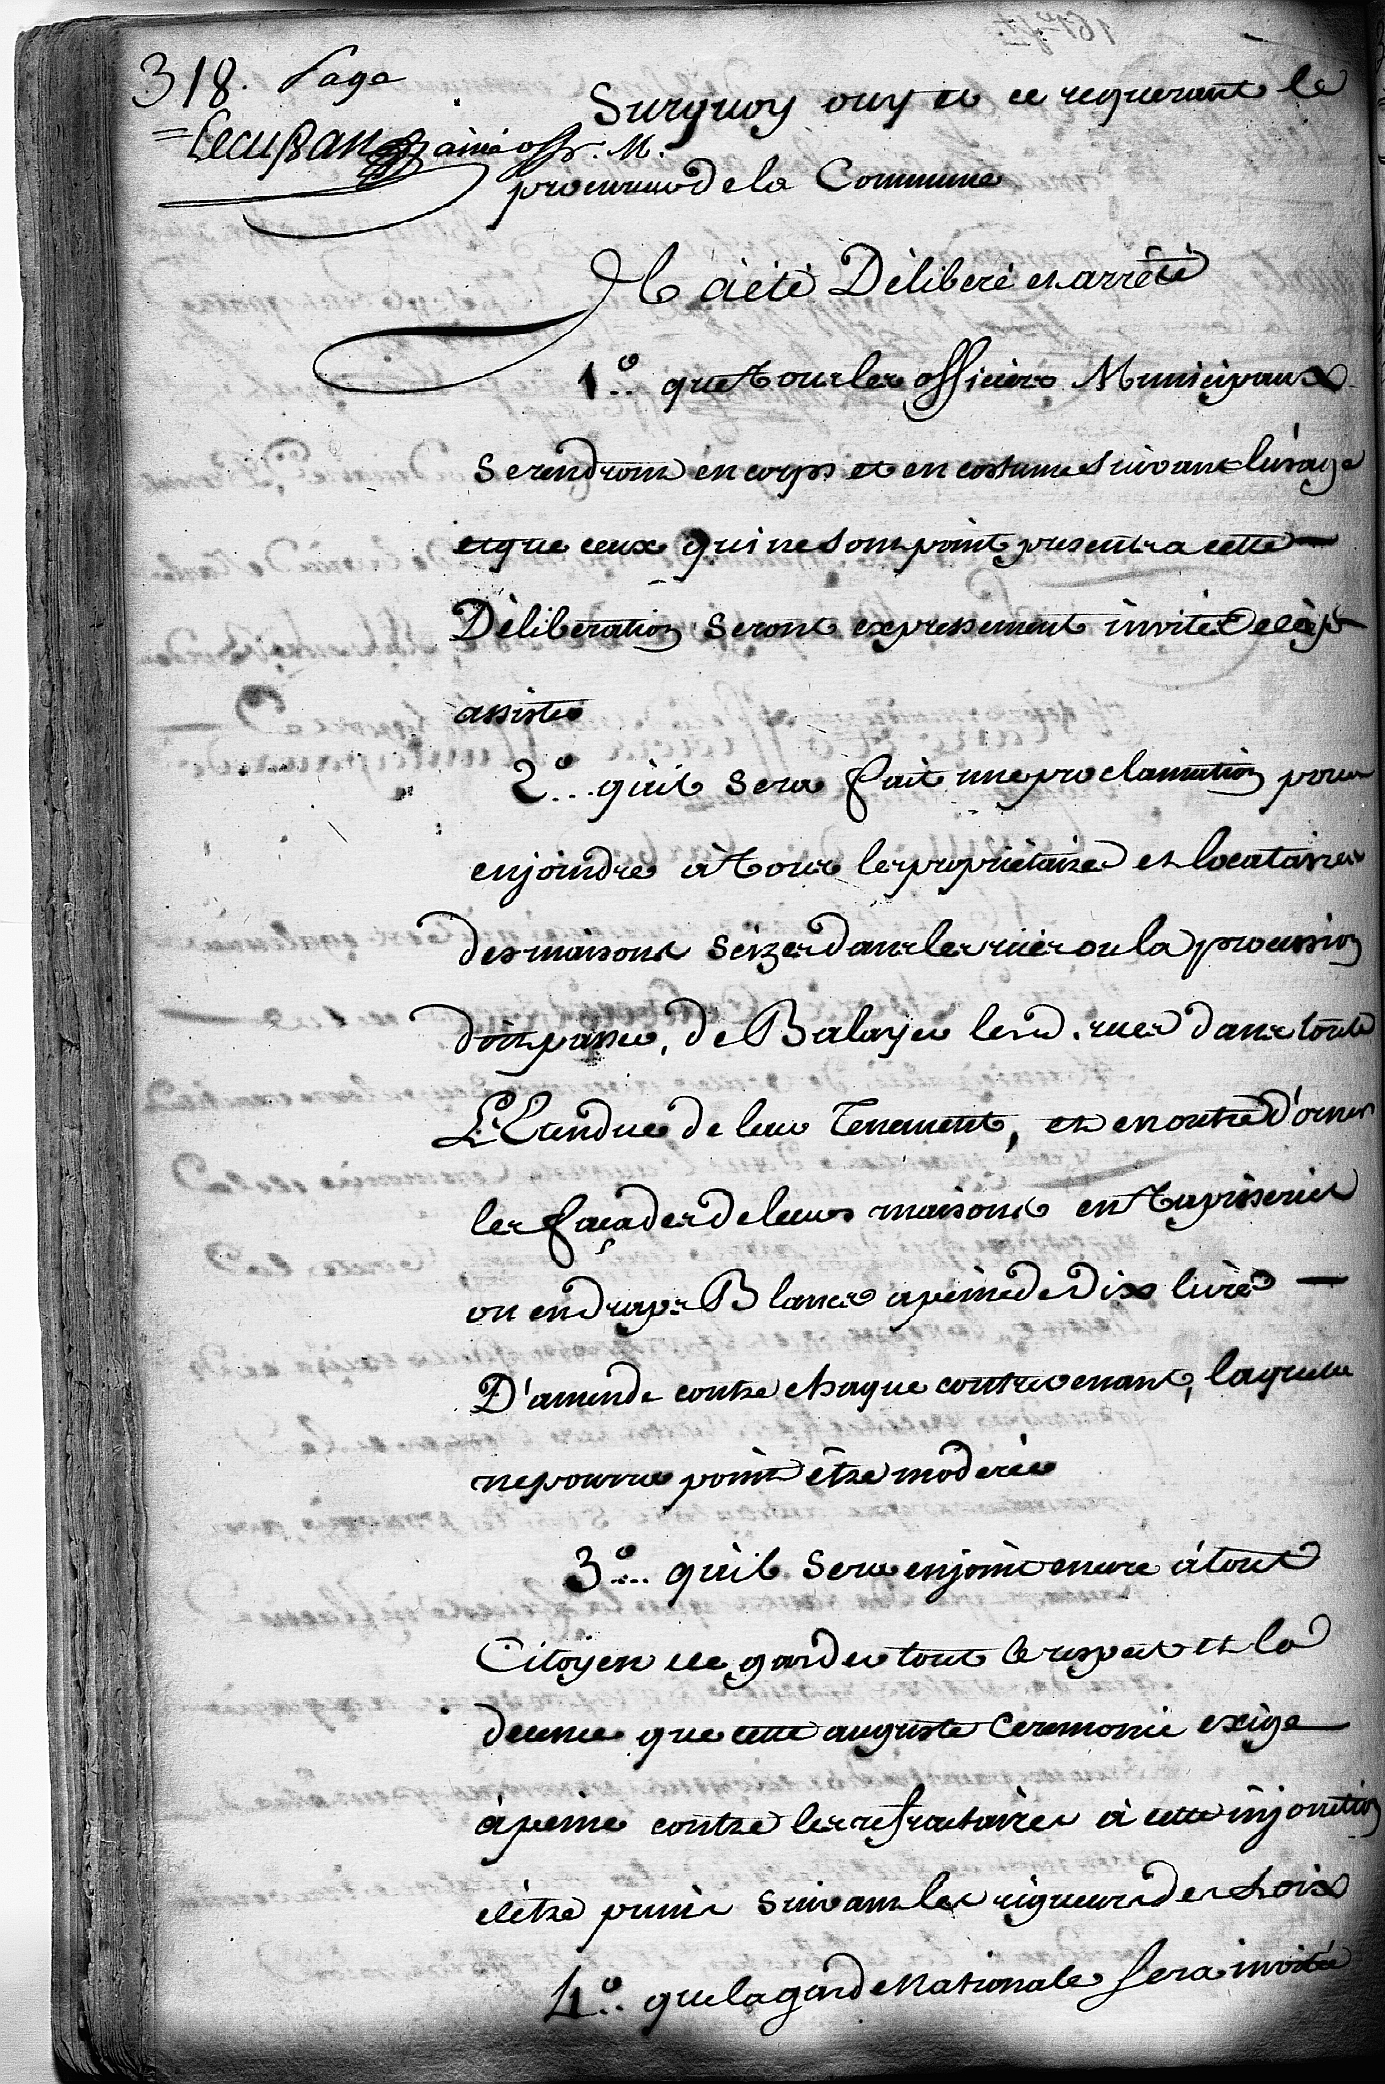 318. Page
Surquoy ouy et ce requerant le
Lecussan ainé off. M.
procureur de la Commune
Il à été Déliberé et arrêté
1°.. que tous les officiers Municipaux
se rendront en corps et en costume suivant l'usage
et que ceux qui ne sont point present a cette
Déliberation seront expressement invités de
assister
2°... qu'il sera fait une proclamation pour
enjoindre à tous les propriétaires et locataires
des maisons seizes dans les ruës ou la procession
doit passer, de Balayer lesd. rues dans toute
L'Etendue de leur Tenement, et en outre d'orner
les façades de leurs maisons en tapisseries
ou en draps Blancs a peine de Dix livres
D'amende contre chaque contrevenant, laquelle
ne pourra point être moderée
3°... qu'il sera enjoint encore à tout
Citoyen de garder tout le respect et la
decence que cette auguste Ceremonie exige
à peine contre les refractaires à cette injonction
d'être punis suivant les rigueurs des Loix
4°.. que la garde Nationale sera invitée